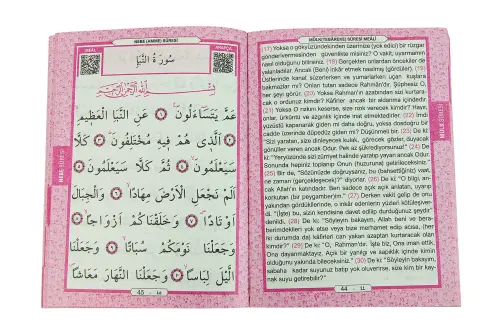 NEBE (AMME) SÛRESİ
MEALİ
ARAPÇA
سُورَةُ النَّبَأِ
بِسْمِ اللّٰهِ الرَّحْمٰنِ الرَّحِيمِ
عَمَّ يَتَسَاءَلُونَ عَنِ النَّبَأِ الْعَظِيمِ
الَّذِى هُمْ فِيهِ مُخْتَلِفُونَ كَلَّا
سَيَعْلَمُونَ ثُمَّ كَلَّا سَيَعْلَمُونَ
اَلَمْ نَجْعَلِ الْاَرْضَ مِهَادًا وَالْجِبَالَ
اَوْتَادًا وَخَلَقْنَاكُمْ اَزْوَاجًا
وَجَعَلْنَا نَوْمَكُمْ سُبَاتًا وَجَعَلْنَا
الَّيْلَ لِبَاسًا وَجَعَلْنَا النَّهَارَ مَعَاشًا
NEBE SÛRESİ
45
MÜLK(TEBAREKE) SÛRESİ MEÂLİ
(17) Yoksa o gökyüzündekinden üzerinize (yok edici) bir rüzgar
göndermeyeceğinden güvenlikte misiniz? O vakit, uyarmamın
nasıl olduğunu bilirsiniz. (18) Gerçekten onlardan öncekiler de
yalanladılar. Ancak (Beni) inkâr etmek nasılmış (gördüler). (19)
Üstlerinde kanat süzerlerken ve yumarlarken uçan kuşlara
bakmazlar mı? Onları tutan sadece Rahmân'dır. Şüphesiz O,
her şeyi görür. (20) Yoksa Rahman'ın azabından sizi kurtara-
cak o ordunuz kimdir? Kâfirler ancak bir aldanma içindedir.
(21) Yoksa O rızkını keserse, size rızık verecek kimdir? Hayır,
onlar, ürküntü ve azgınlık içinde inat etmektedirler. (22) İmdi
yüzüstü kapanarak giden mi daha doğru, yoksa dosdoğru bir
cadde üzerinde düpedüz giden mi? Düşünmeli bir. (23) De ki:
"Sizi yaratan, size dinleyecek kulak, görecek gözler, duyacak
gönüller veren ancak Odur. Pek az şükrediyorsunuz!" (24) De
ki: "Yeryüzünde sizi zürriyet halinde yaratıp yayan ancak Odur.
Sonunda hepiniz toplanıp Onun (huzuruna) getirileceksiniz."
(25) Bir de, "Sözünüzde doğruysanız, bu (bahsettiğiniz) vaat,
ne zaman (gerçekleşecek)?" diyorlar. (26) De ki: "O bilgi, an-
cak Allah'ın katındadır. Ben sadece açık açık anlatan, uyarıp
korkutan (bir peygamber)im." (27) Derken vakit gelip de onu
yakından gördüklerinde, o inkâr edenlerin yüzleri kötüleşiver-
di. "(İşte) bu, sizin kendisine davet edilip durduğunuz şeydir"
denildi. (28) De ki: "Söyleyin bakayım, Allah beni ve bera-
berimdekileri yok etse veya bize merhamet edip acısa, (her
iki durumda da) kâfirleri o can yakan azaptan kurtaracak olan
kimdir?" (29) De ki: O, Rahman'dır. İşte biz, Ona iman ettik.
Ona dayanmaktayız. Açık bir yanılgı ve sapıklık içinde kimin
olduğunu yakında bileceksiniz." (30) De ki: "Söyleyin bakayım,
sabaha kadar suyunuz batıp yok oluverirse, size kim bir kay-
nak suyu getirebilir?"
MÜLK SÛRESİ
44